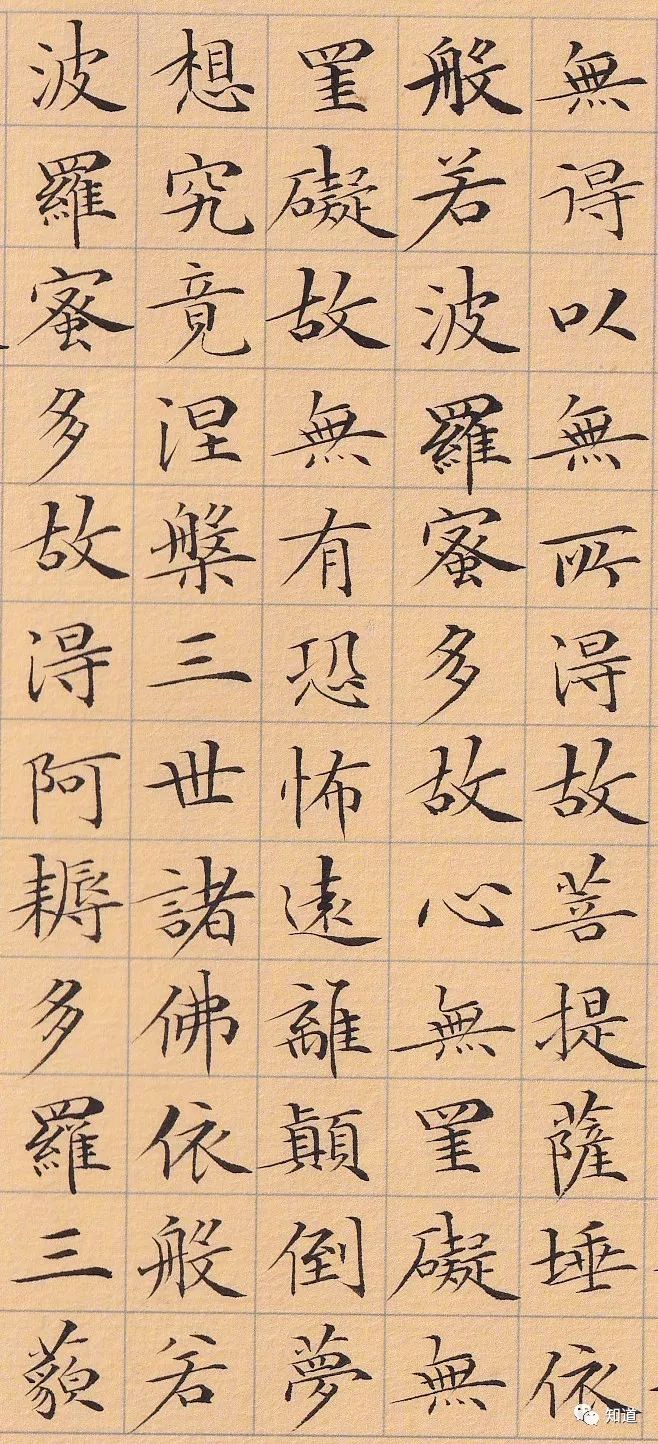 無得以無所得故菩提薩埵依
般若波羅蜜多故心無罣礙無
罣礙故無有恐怖遠離顛倒夢
想究竟涅槃三世諸佛依般若
波羅蜜多故得阿耨多羅三藐
知道